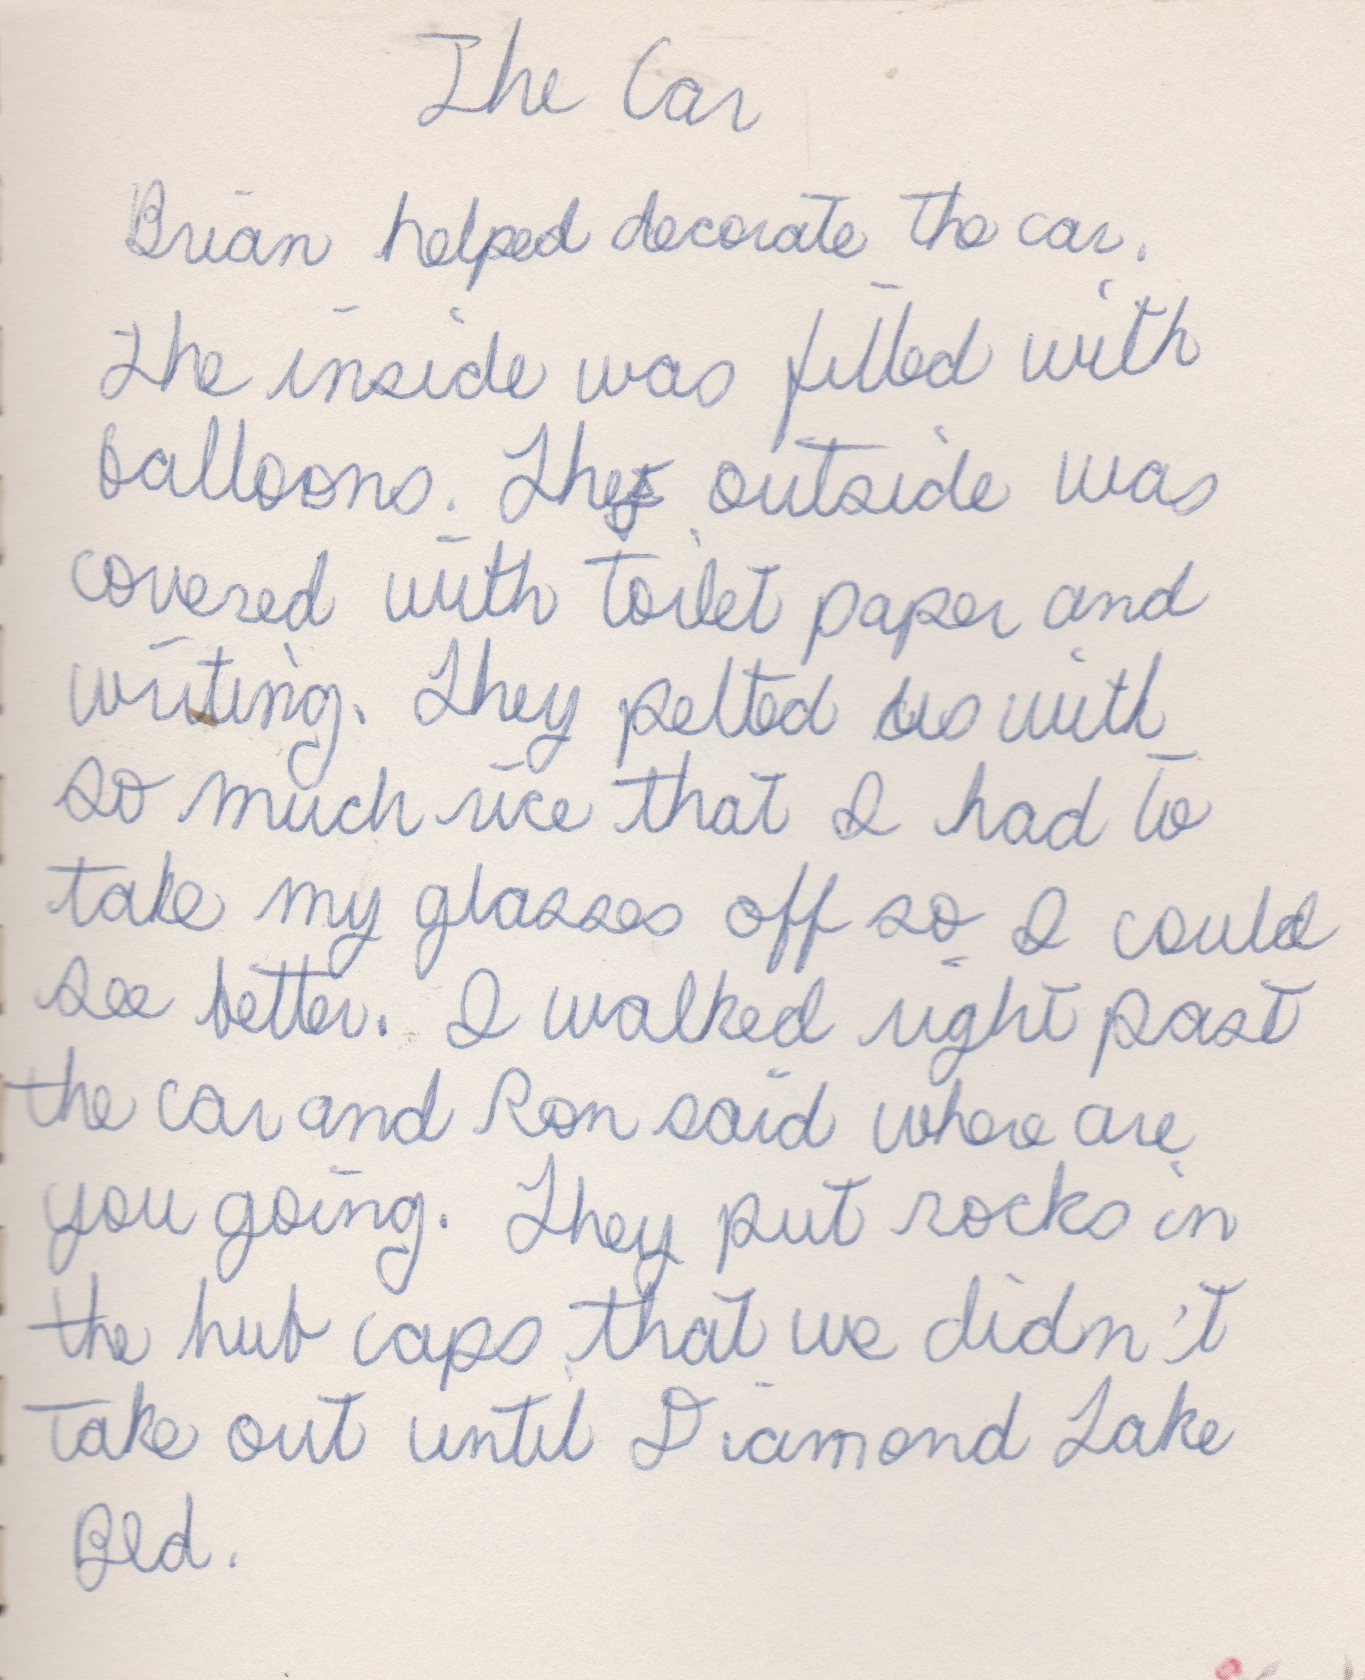 The Car
Brian helped decorate the car.
The inside was filled with
balloons. The outside was
covered with toilet paper and
writing. They pelted us with
so much rice that I had to
take my glasses off so I could
see better. I walked right past
the car and Ron said where are
you going. They put rocks in
the hub caps that we didn't
take out until Diamond Lake
Bld.